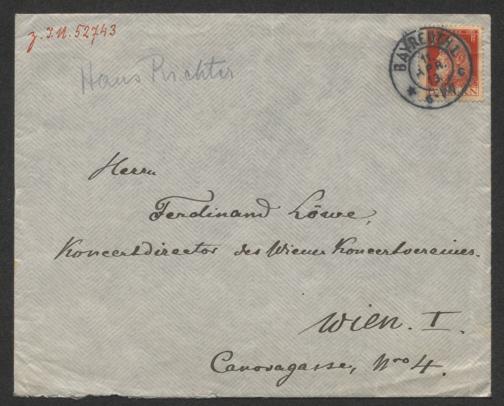 z. I.N. 52743
Hans Richter
BAYREUTH 1.
APR.
Herrn
Ferdinand Löwe,
Koncertdirector des Wiener Koncertvereines.
Wien. I.
Canovagasse, Nro 4.